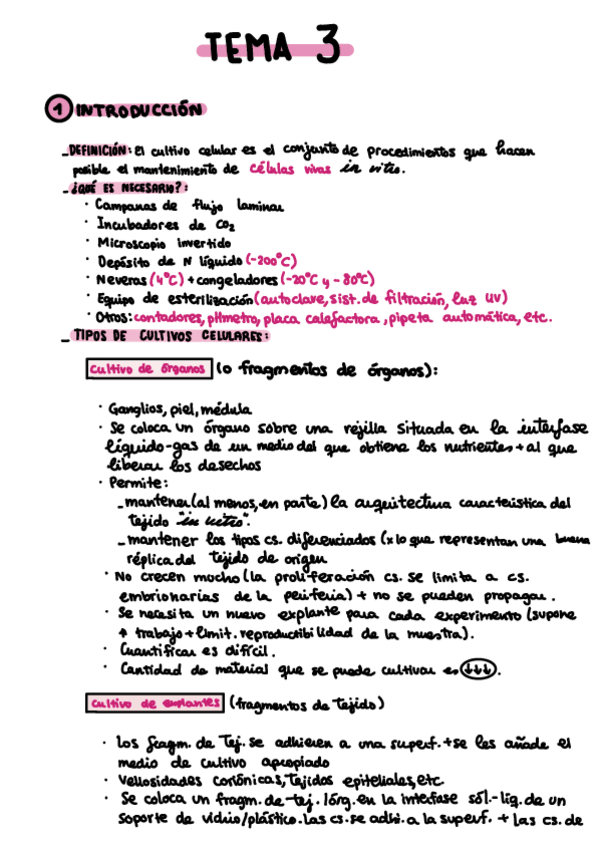 TEMA 3
1 INTRODUCCIÓN
_DEFINICIÓN: El cultivo celular es el conjunto de procedimientos que hacen
posible el mantenimiento de células vivas in vitro.
_¿QUÉ ES NECESARIO?:
· Campanas de flujo laminar
· Incubadores de CO2
· Microscopio invertido
· Depósito de N líquido (-200°C)
· Neveras (4°C) + congeladores (-20°C y -80°C)
· Equipo de esterilización (autoclave, sist. de filtración, luz UV)
· Otros: contadores, pHmetro, placa calefactora, pipeta automática, etc.
_ TIPOS DE CULTIVOS CELULARES:
Cultivo de órganos (o fragmentos de órganos):
· Ganglios, piel, médula
· Se coloca un órgano sobre una rejilla situada en la interfase
líquido-gas de un medio del que obtiene los nutrientes + al que
liberar los desechos
· Permite:
_mantener (al menos, en parte) la arquitectura característica del
tejido "in vitro".
_mantener los tipos cs. diferenciados (x lo que representan una buena
réplica del tejido de origen
· No crecen mocho (la proliferación cs. se limita a cs.
embrionarias de la periferia) + no se pueden propagar.
· Se necesita un nuevo explante para cada experimento (supone
↑ trabajo + limit. reproductibilidad de la muestra).
· Cuantificar es difícil.
· Cantidad de material que se puede cultivar es ↓↓↓.
Cultivo de explantes (fragmentos de tejido)
· Los fragm. de Tej. se adhieren a una superf. + se les añade el
medio de cultivo apropiado
· Vellosidades coriónicas, tejidos epiteliales, etc.
· Se coloca un fragm. de tej. / órg. en la interfase sól.-líq. de un
soporte de vidrio/plástico. Las cs. se adhi. a la superf. + las cs. de